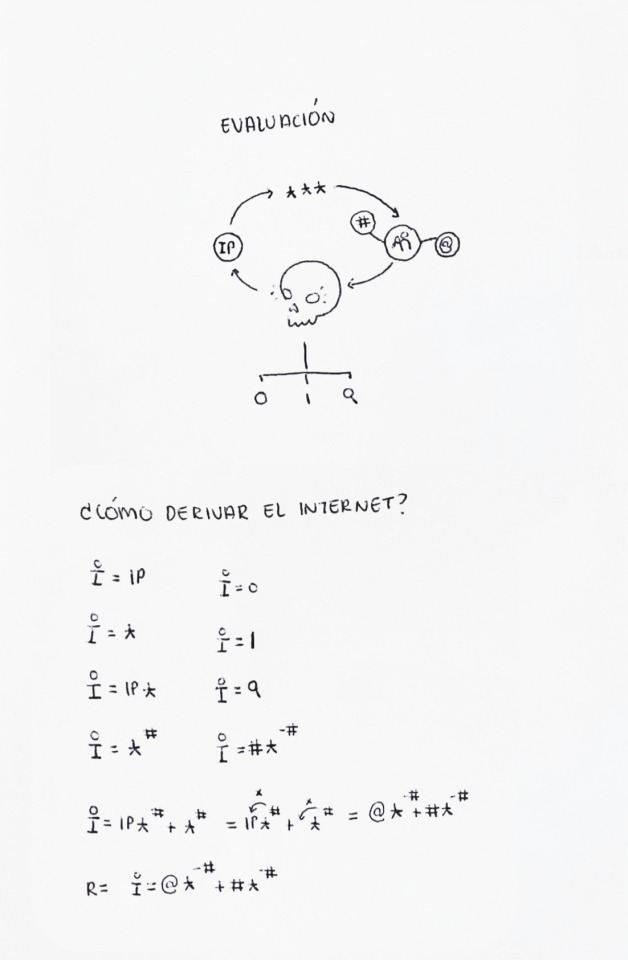 EVALUACIÓN
***
#
IP
@
0 1 9
¿CÓMO DERIVAR EL INTERNET?
I̊ = IP I̊ = 0
I̊ = * I̊ = 1
I̊ = IP·* I̊ = 9
I̊ = *^# I̊ = #*^-#
I̊ = IP*^# + *^# = IP*^# + *^# = @*^-# + #*^-#
R= I̊ = @*^-# + #*^-#